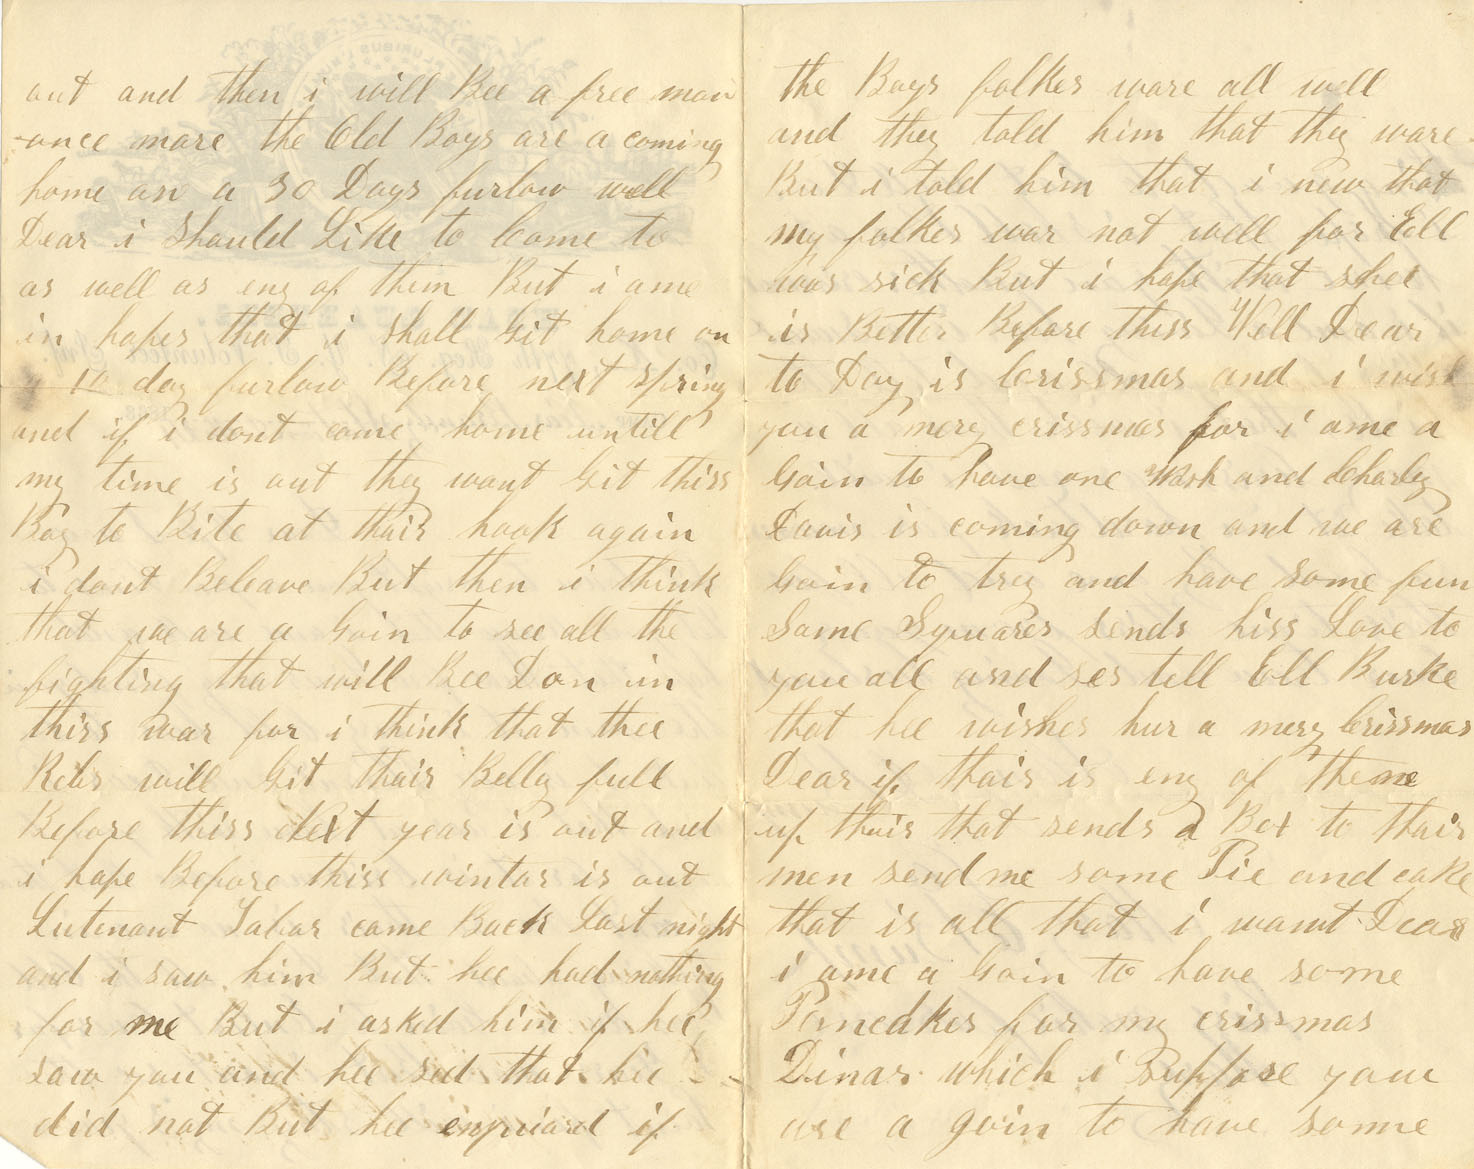 out and then i will Bee a free man
once more the Old Boys are a coming
home on a 30 Days furlow well
Dear i Should Like to Come to
as well as eny of them But i ame
in hopes that i shall Git home on
a 10 day furlow Before next spring
and if i dont come home untill
my time is out they wont Git thiss
Boy to Bite at thair hook again
i dont Beleave But then i think
that we are a Goin to see all the
fighting that will Bee Don in
thiss war for i think that thee
Rebs will Git thair Belly full
Before thiss next year is out and
i hope Before thiss wintar is out
Lutenant Tabar came Back Last night
and i saw him But hee had nothing
for me But i asked him if hee
saw you and hee sed that hee
did not But hee enquiard if
the Boys folkes ware all well
and they told him that they ware
But i told him that i new that
my folkes war not well for Ell
was sick But i hope that shee
is Better Before thiss Well Dear
to Day is Crissmas and i wish
you a mery crissmas for i ame a
Goin to have one Wash and Charley
Davis is coming down and we are
Goin to try and have some fun
Same Squares sends hiss Love to
you all and ses tell Ell Burke
that hee wishes hur a mery Crissmas
Dear if thair is eny of theme
up thair that sends a Box to thair
men send me some Pie and cake
that is all that i wamt Dear
i ame a Goin to have some
Pancakes for my crissmas
Dinar which i suppose you
are a goin to have some